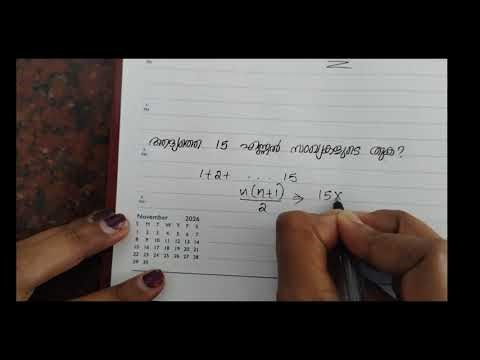 ആദ്യത്തെ 15 എണ്ണൽ സംഖ്യകളുടെ തുക?
1+2+ ... 15
n(n+1)
2
→ 15x
November 2026
S M T W T F S
1 2 3 4 5 6 7
8 9 10 11 12 13 14
15 16 17 18 19 20 21
22 23 24 25 26 27 28
29 30